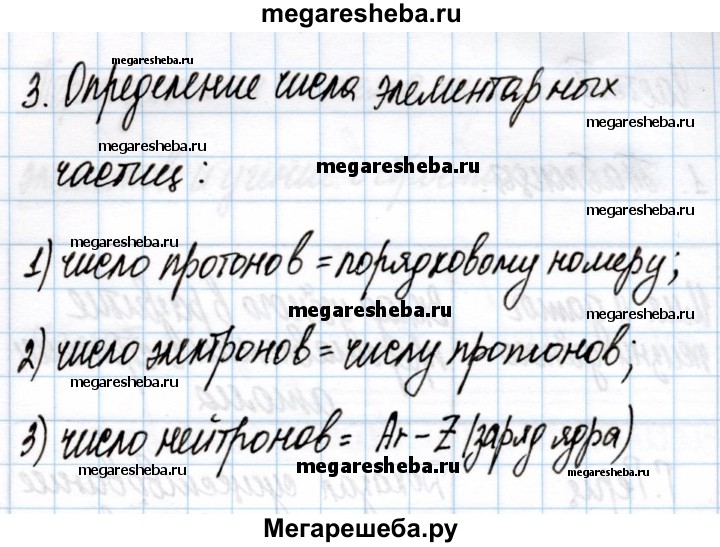 megaresheba.ru
megaresheba.ru
3. Определение числа элементарных
megaresheba.ru
megaresheba.ru
частиц:
megaresheba.ru
megaresheba.ru
megaresheba.ru
1) число протонов = порядковому номеру;
megaresheba.ru
megaresheba.ru
2) число электронов = числу протонов;
megaresheba.ru
megaresheba.ru
3) число нейтронов = Ar – Z (заряд ядра)
megaresheba.ru
megaresheba.ru
megaresheba.ru
Мегарешеба.ру